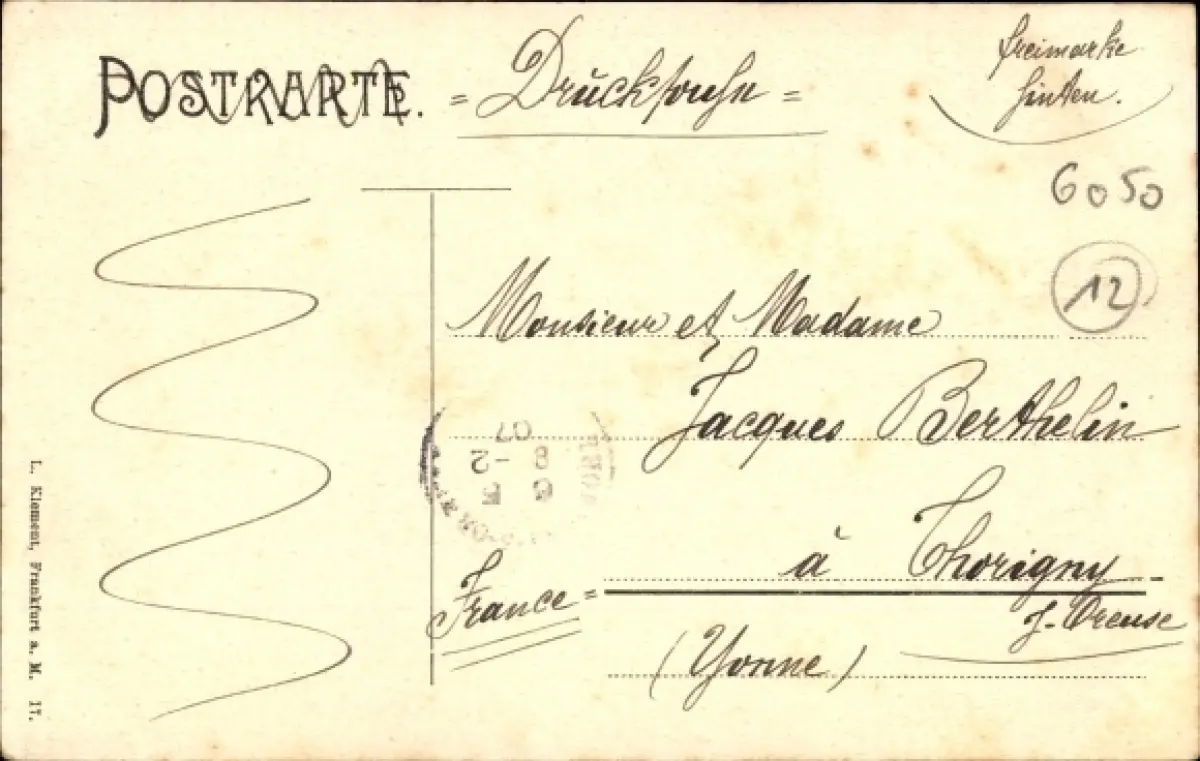 POSTKARTE.
= Drucksache =
Freimarke
hinten.
6050
12
Monsieur et Madame
Jacques Berthelin
à Thorigny
s. Oreuse
France =
(Yonne)
8 -2
07
L. Klement, Frankfurt a. M. 17.